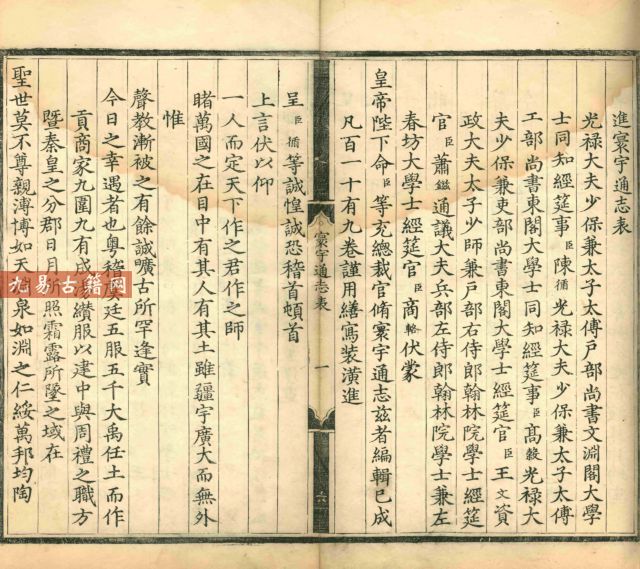 進寰宇通志表
光禄大夫少保兼太子太傅戸部尚書文淵閣大學
士同知經筵事臣陳循光禄大夫少保兼太子太傅
工部尚書東閣大學士同知經筵事臣高榖光禄大
夫少保兼吏部尚書東閣大學士經筵官臣王文資
政大夫太子少師兼戸部右侍郎翰林院學士經筵
官臣蕭鎡通議大夫兵部左侍郎翰林院學士兼左
春坊大學士經筵官臣商輅伏蒙
皇帝陛下命臣等充總裁官脩寰宇通志兹者編輯已成
凡百一十有九卷謹用繕寫装潢進
寰宇通志表
一
六
呈臣循等誠惶誠恐稽首頓首
上言伏以仰
一人而定天下作之君作之師
睹萬國之在目中有其人有其土雖疆宇廣大而無外
惟
聲教漸被之有餘誠曠古所罕逢實
今日之幸遇者也粤稽虞廷五服五千大禹任土而作
貢商家九圍九有成湯纘服以建中與周禮之職方
暨秦皇之分郡日月所照霜露所墜之域在
聖世莫不尊親溥博如天淵泉如淵之仁綏萬邦均陶
九易古籍网